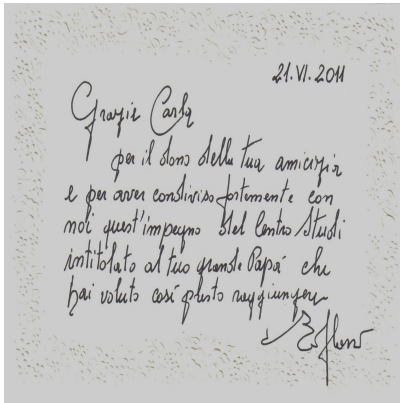 21.VI.2011
Grazie Carla
per il dono della tua amicizia
e per aver condiviso fortemente con
noi quest'impegno del Centro Studi
intitolato al tuo grande Papà che
hai voluto così presto raggiungere